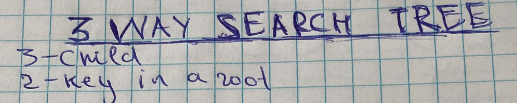 3 WAY SEARCH TREE
3-child
2-key in a root